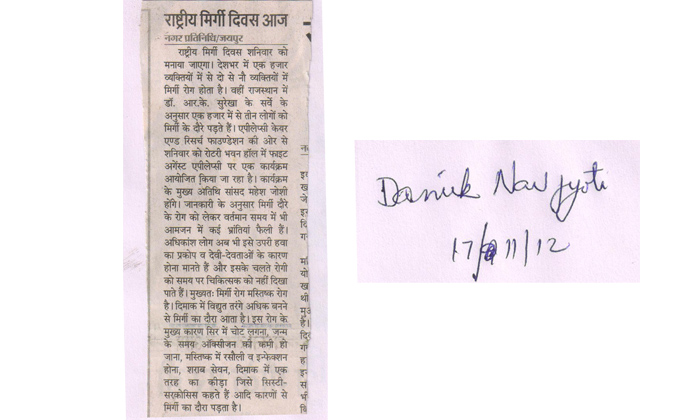 राष्ट्रीय मिर्गी दिवस आज
नगर प्रतिनिधि/जयपुर
राष्ट्रीय मिर्गी दिवस शनिवार को
मनाया जाएगा। देशभर में एक हजार
व्यक्तियों में से दो से नौ व्यक्तियों में
मिर्गी रोग होता है। वहीं राजस्थान में
डॉ. आर.के. सुरेखा के सर्वे के
अनुसार एक हजार में से तीन लोगों को
मिर्गी के दौरे पड़ते हैं। एपीलेप्सी केयर
एण्ड रिसर्च फाउण्डेशन की ओर से
शनिवार को रोटरी भवन हॉल में फाइट
अगेंस्ट एपीलेप्सी पर एक कार्यक्रम
आयोजित किया जा रहा है। कार्यक्रम
के मुख्य अतिथि सांसद महेश जोशी
होंगे। जानकारी के अनुसार मिर्गी दौरे
के रोग को लेकर वर्तमान समय में भी
आमजन में कई भ्रांतियां फैली हैं।
अधिकांश लोग अब भी इसे उपरी हवा
का प्रकोप व देवी-देवताओं के कारण
होना मानते हैं और इसके चलते रोगी
को समय पर चिकित्सक को नहीं दिखा
पाते हैं। मुख्यतः मिर्गी रोग मस्तिष्क रोग
है। दिमाक में विद्युत तरंगे अधिक बनने
से मिर्गी का दौरा आता है। इस रोग के
मुख्य कारण सिर में चोट लगना, जन्म
के समय ऑक्सीजन की कमी हो
जाना, मस्तिष्क में रसौली व इन्फेक्शन
होना, शराब सेवन, दिमाक में एक
तरह का कीड़ा जिसे सिस्टी-
सरकोसिस कहते हैं आदि कारणों से
मिर्गी का दौरा पड़ता है।
Danik Navjyoti
17/11/12